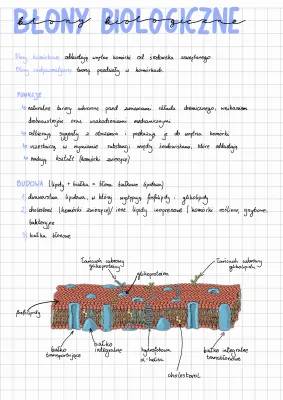 BŁONY BIOLOGICZNE
błony biologiczne
Błony komórkowe oddzielają wnętrze komórki od środowiska zewnętrznego
Błony wewnątrzkomórkowe tworzą przedziały w komórkach.
FUNKCJE
naturalne bariery ochronne przed zmianami składu chemicznego,
drobnoustrojów oraz uszkodzeniami mechanicznymi
odbierają sygnały z otoczenia i do wnętrza komórki
uczestniczą w wymianie substancji między środowiskami, które oddzielają
nadają kształt (komórki zwierzęce)
BUDOWA (lipidy + białka = błona białkowo lipidowa)
1) dwuwarstwa lipidowa, w której występują fosfolipidy i glikolipidy
2) cholesterol (komórki zwierzęce)/ inne lipidy (komórki roślinne, grzybowe,
bakteryjne
3) białka błonowe
łańcuch cukrowy
glikoproteiny
glikoproteina
łańcuch cukrowy
glikolipidu
fosfolipidy
białko
transportujące
białko
integralne
hydrofobowa
α-helisa
cholesterol
białko integralne
transbłonowe